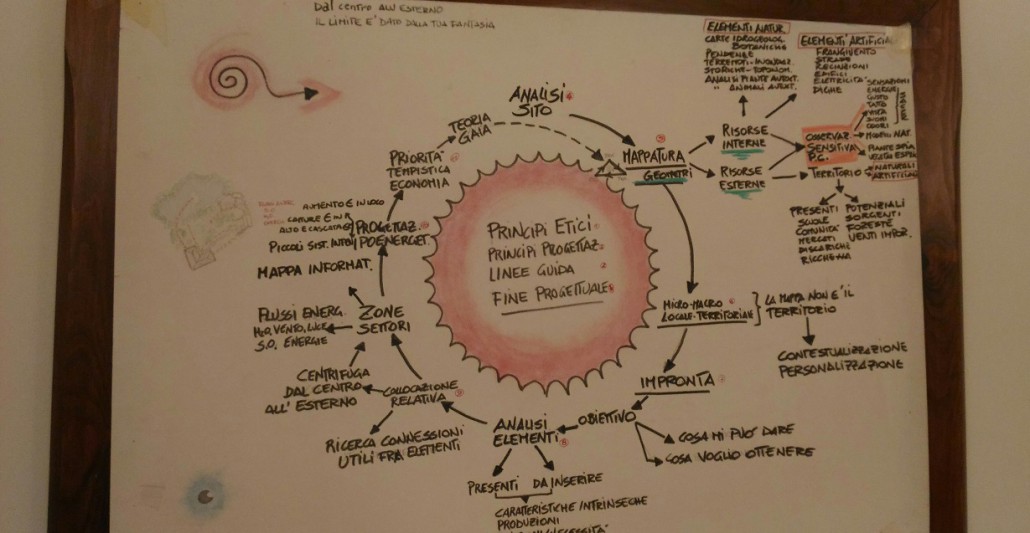 Dal centro all'esterno
il limite e' dato dalla tua fantasia
ANALISI
SITO
TEORIA
GAIA
PRIORITA'
TEMPISTICA
ECONOMIA
AUMENTO E IN LOCO
PROGETTAZ.
PICCOLI SIST.
MAPPA INFORMAT.
FLUSSI ENERG.
H2O, VENTO, LUCE
S.O. ENERGIE
ZONE
SETTORI
CENTRIFUGA
DAL CENTRO
ALL'ESTERNO
COLLOCAZIONE
RELATIVA
RICERCA CONNESSIONI
UTILI FRA ELEMENTI
ANALISI
ELEMENTI
PRESENTI DA INSERIRE
CARATTERISTICHE INTRINSECHE
PRODUZIONI
OBIETTIVO
COSA MI PUÒ DARE
COSA VOGLIO OTTENERE
IMPRONTA
MICRO-MACRO
LOCALE-TERRITORIALE
LA MAPPA NON E' IL
TERRITORIO
CONTESTUALIZZAZIONE
PERSONALIZZAZIONE
PRINCIPI ETICI
PRINCIPI PROGETTAZ.
LINEE GUIDA
FINE PROGETTUALE
MAPPATURA
RISORSE
INTERNE
RISORSE
ESTERNE
ELEMENTI NATUR.
CARTE IDROGEOLOG.
BOTANICHE
PENDENZE
STORICHE - TOPONOM.
ANALISI PIANTE AUTOCT.
" ANIMALI AUTOCT.
ELEMENTI ARTIFICIA
FRANGIVENTO
STRADE
RECINZIONI
EDIFICI
ELETTRICITÀ
DIGHE
OSSERVAZ.
SENSITIVA
P.C.
SENSAZIONI
ENERGIE
GUSTO
TATTO
VISTA
SUONI
ODORI
TERRITORIO
NATURALI
ARTIFICIALI
PRESENTI
SCUOLE
COMUNITA'
MERCATI
DISCARICHE
POTENZIALI
SORGENTI
FORESTE